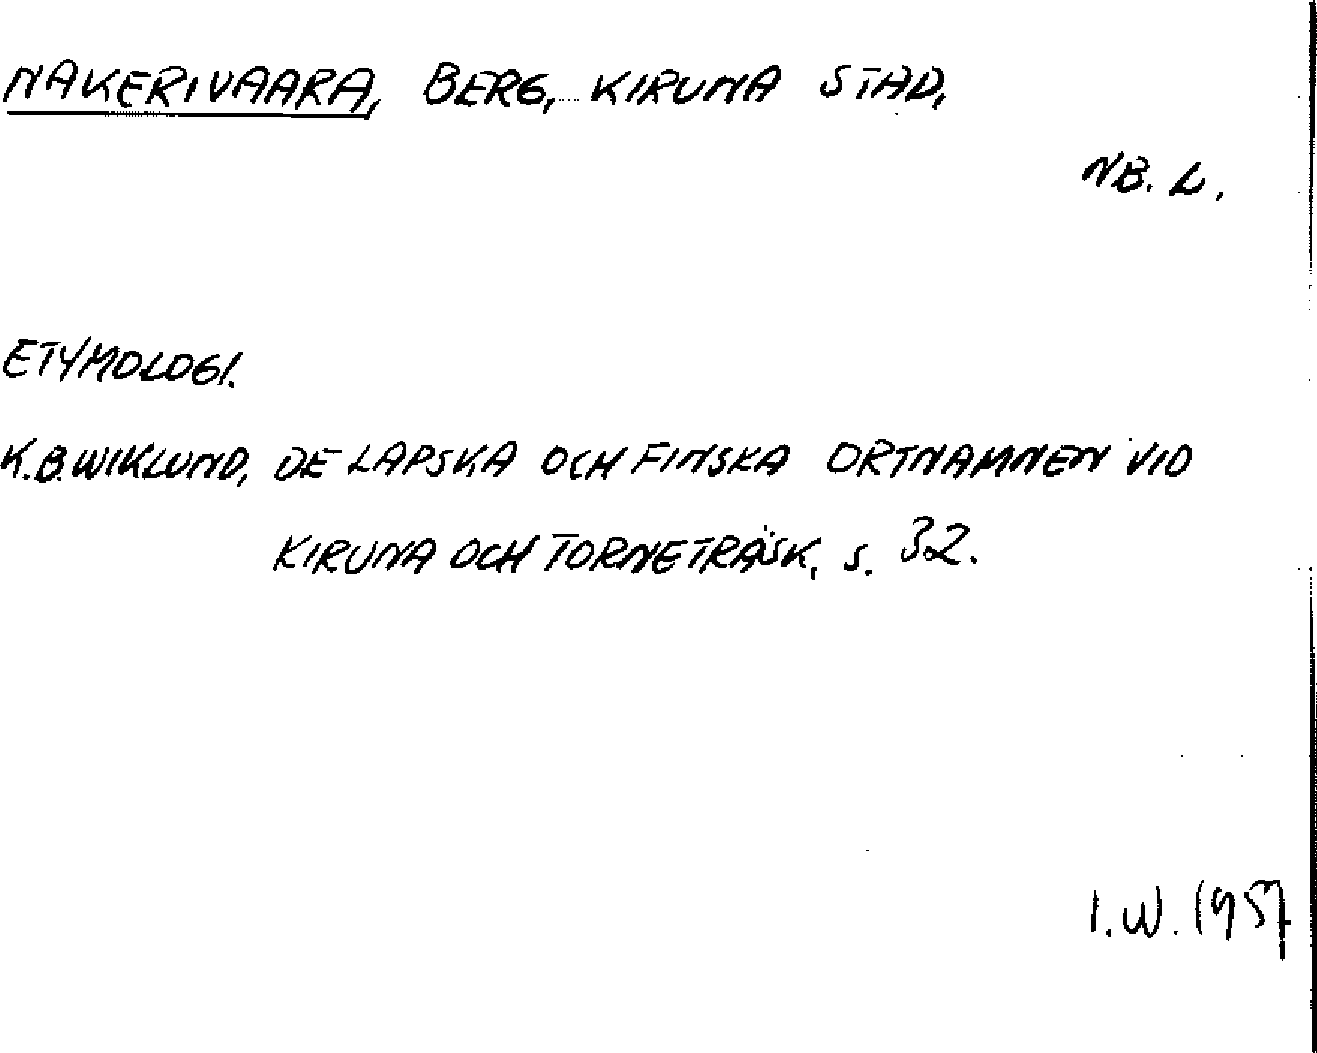 NAKERIVAARA, BERG, KIRUNA STAD,
NB. L.
ETYMOLOGI.
K.B. WIKLUND, DE LAPSKA OCH FINSKA ORTNAMNEN VID
KIRUNA OCH TORNETRÄSK, s. 32.
I.W. 1957